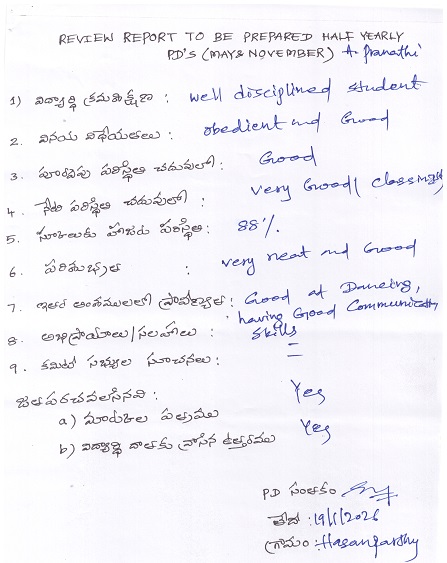 REVIEW REPORT TO BE PREPARED HALF YEARLY
P.D'S (MAY & NOVEMBER) A. Pranathi
1) విద్యార్థి క్రమశిక్షణ : well disciplined student
2. వినయ విధేయతలు : obedient and Good
3. పూర్వపు పరిస్థితి చదువులో : Good
4. నేటి పరిస్థితి చదువులో : very Good (Classing)
5. స్కూలుకు హాజరు పరిస్థితి: 88%.
6. పరిశుభ్రత : very neat and Good
7. ఇతర అంశములలో ప్రావీణ్యత : Good at Dancing,
having Good Communication
8. అభిప్రాయాలు/సలహాలు : Skills
9. కమిటీ సభ్యుల సూచనలు: =
జతపరచవలసినవి :
a) మార్కుల పత్రము Yes
b) విద్యార్థి దాతకు వ్రాసిన ఉత్తరము Yes
P.D సంతకం
తేదీ : 19/1/2026
గ్రామం : Hasanparthy